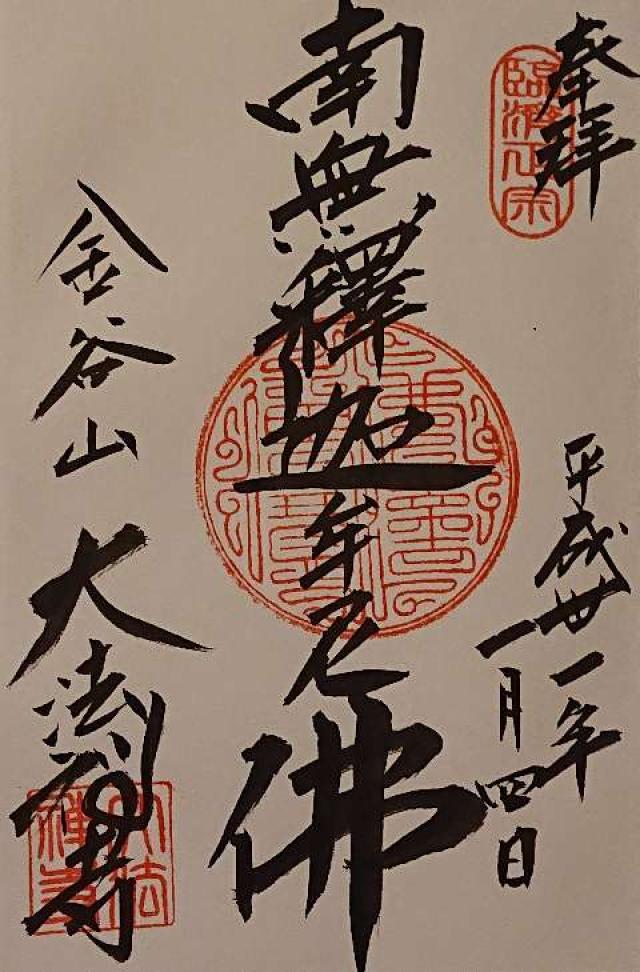 奉拝
臨濟正宗
平成丗一年
一月四日
南無釋迦牟尼佛
金谷山
大法禅寺
大法
禅寺